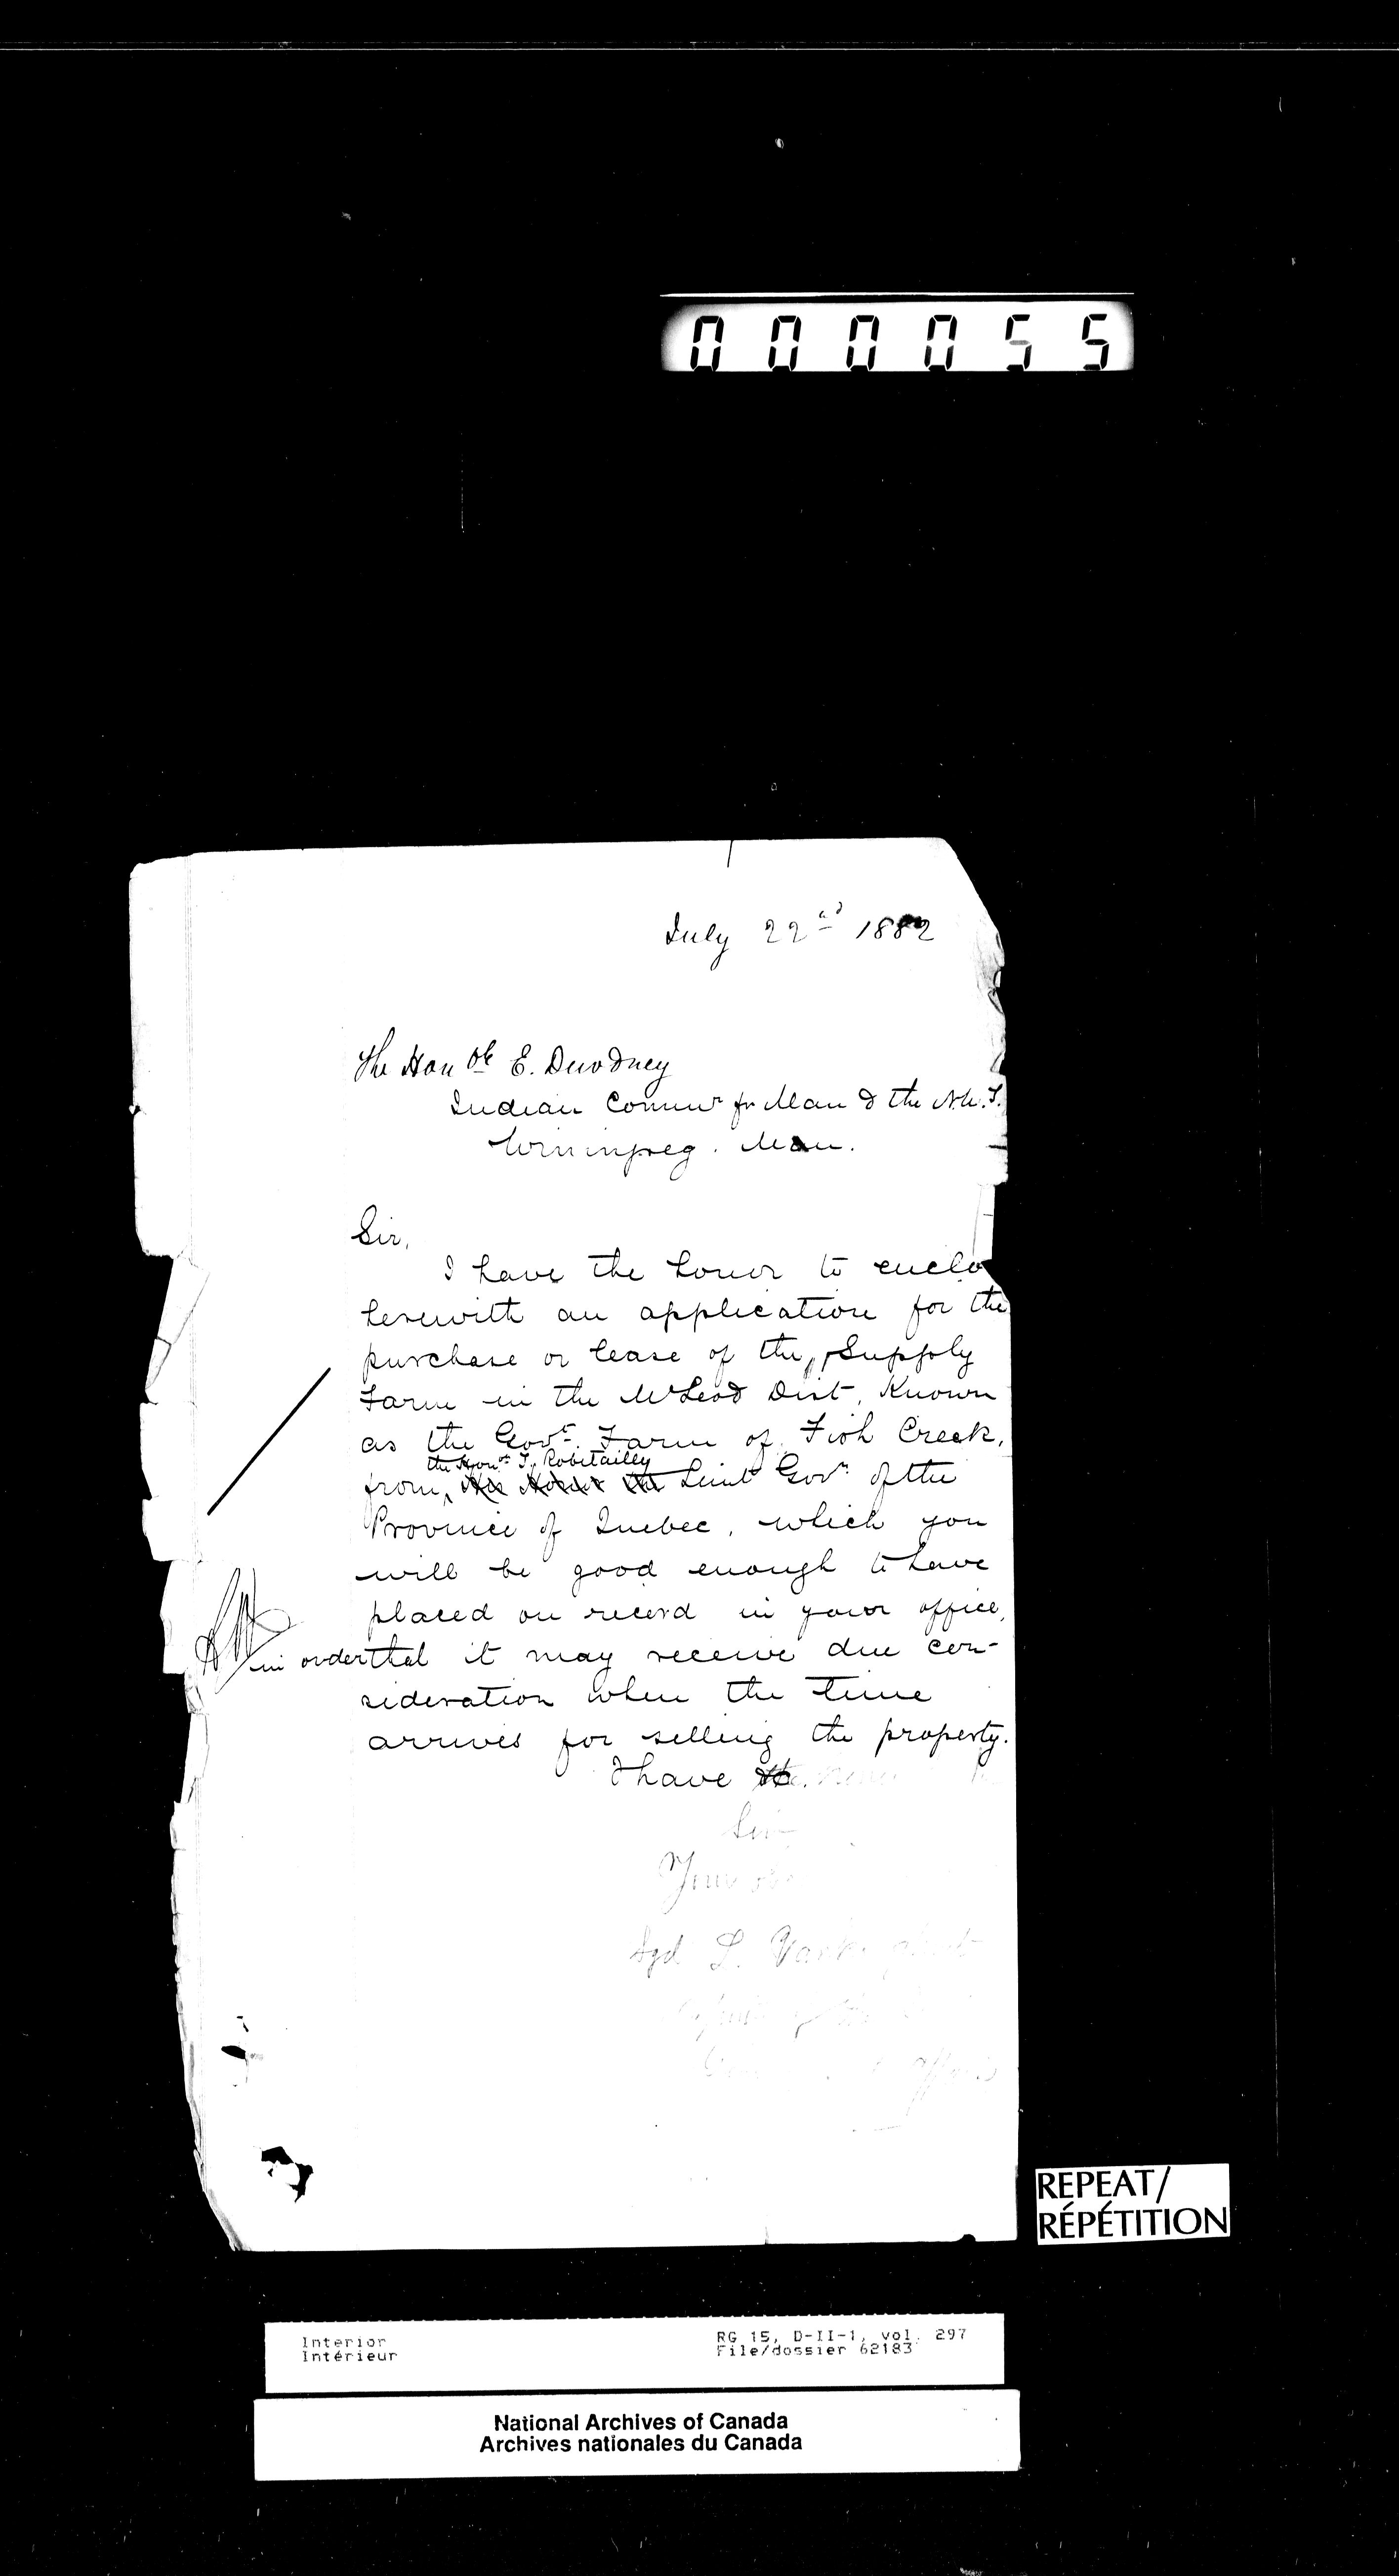 000055
July 22nd 1882
The Honble E. Dewdney
Indian Commr fr Man & the N.W.T.
Winnipeg. Man.
Sir,
I have the honor to enclo
herewith an application for the
purchase or lease of the Supply
Farm in the McLeod Dist, Known
as the Govt. Farm of Fish Creek,
the Honl T. Robitailly
from His Honor the Lieut Govr of the
Province of Quebec, which you
will be good enough to have
placed on record in your office,
in order that it may receive due con-
sideration when the time
arrives for selling the property.
I have the
Sir
Your
Sgd L. Vankoughnet
REPEAT/
RÉPÉTITION
Interior
Intérieur
RG 15, D-II-1, vol. 297
File/dossier 62183
National Archives of Canada
Archives nationales du Canada